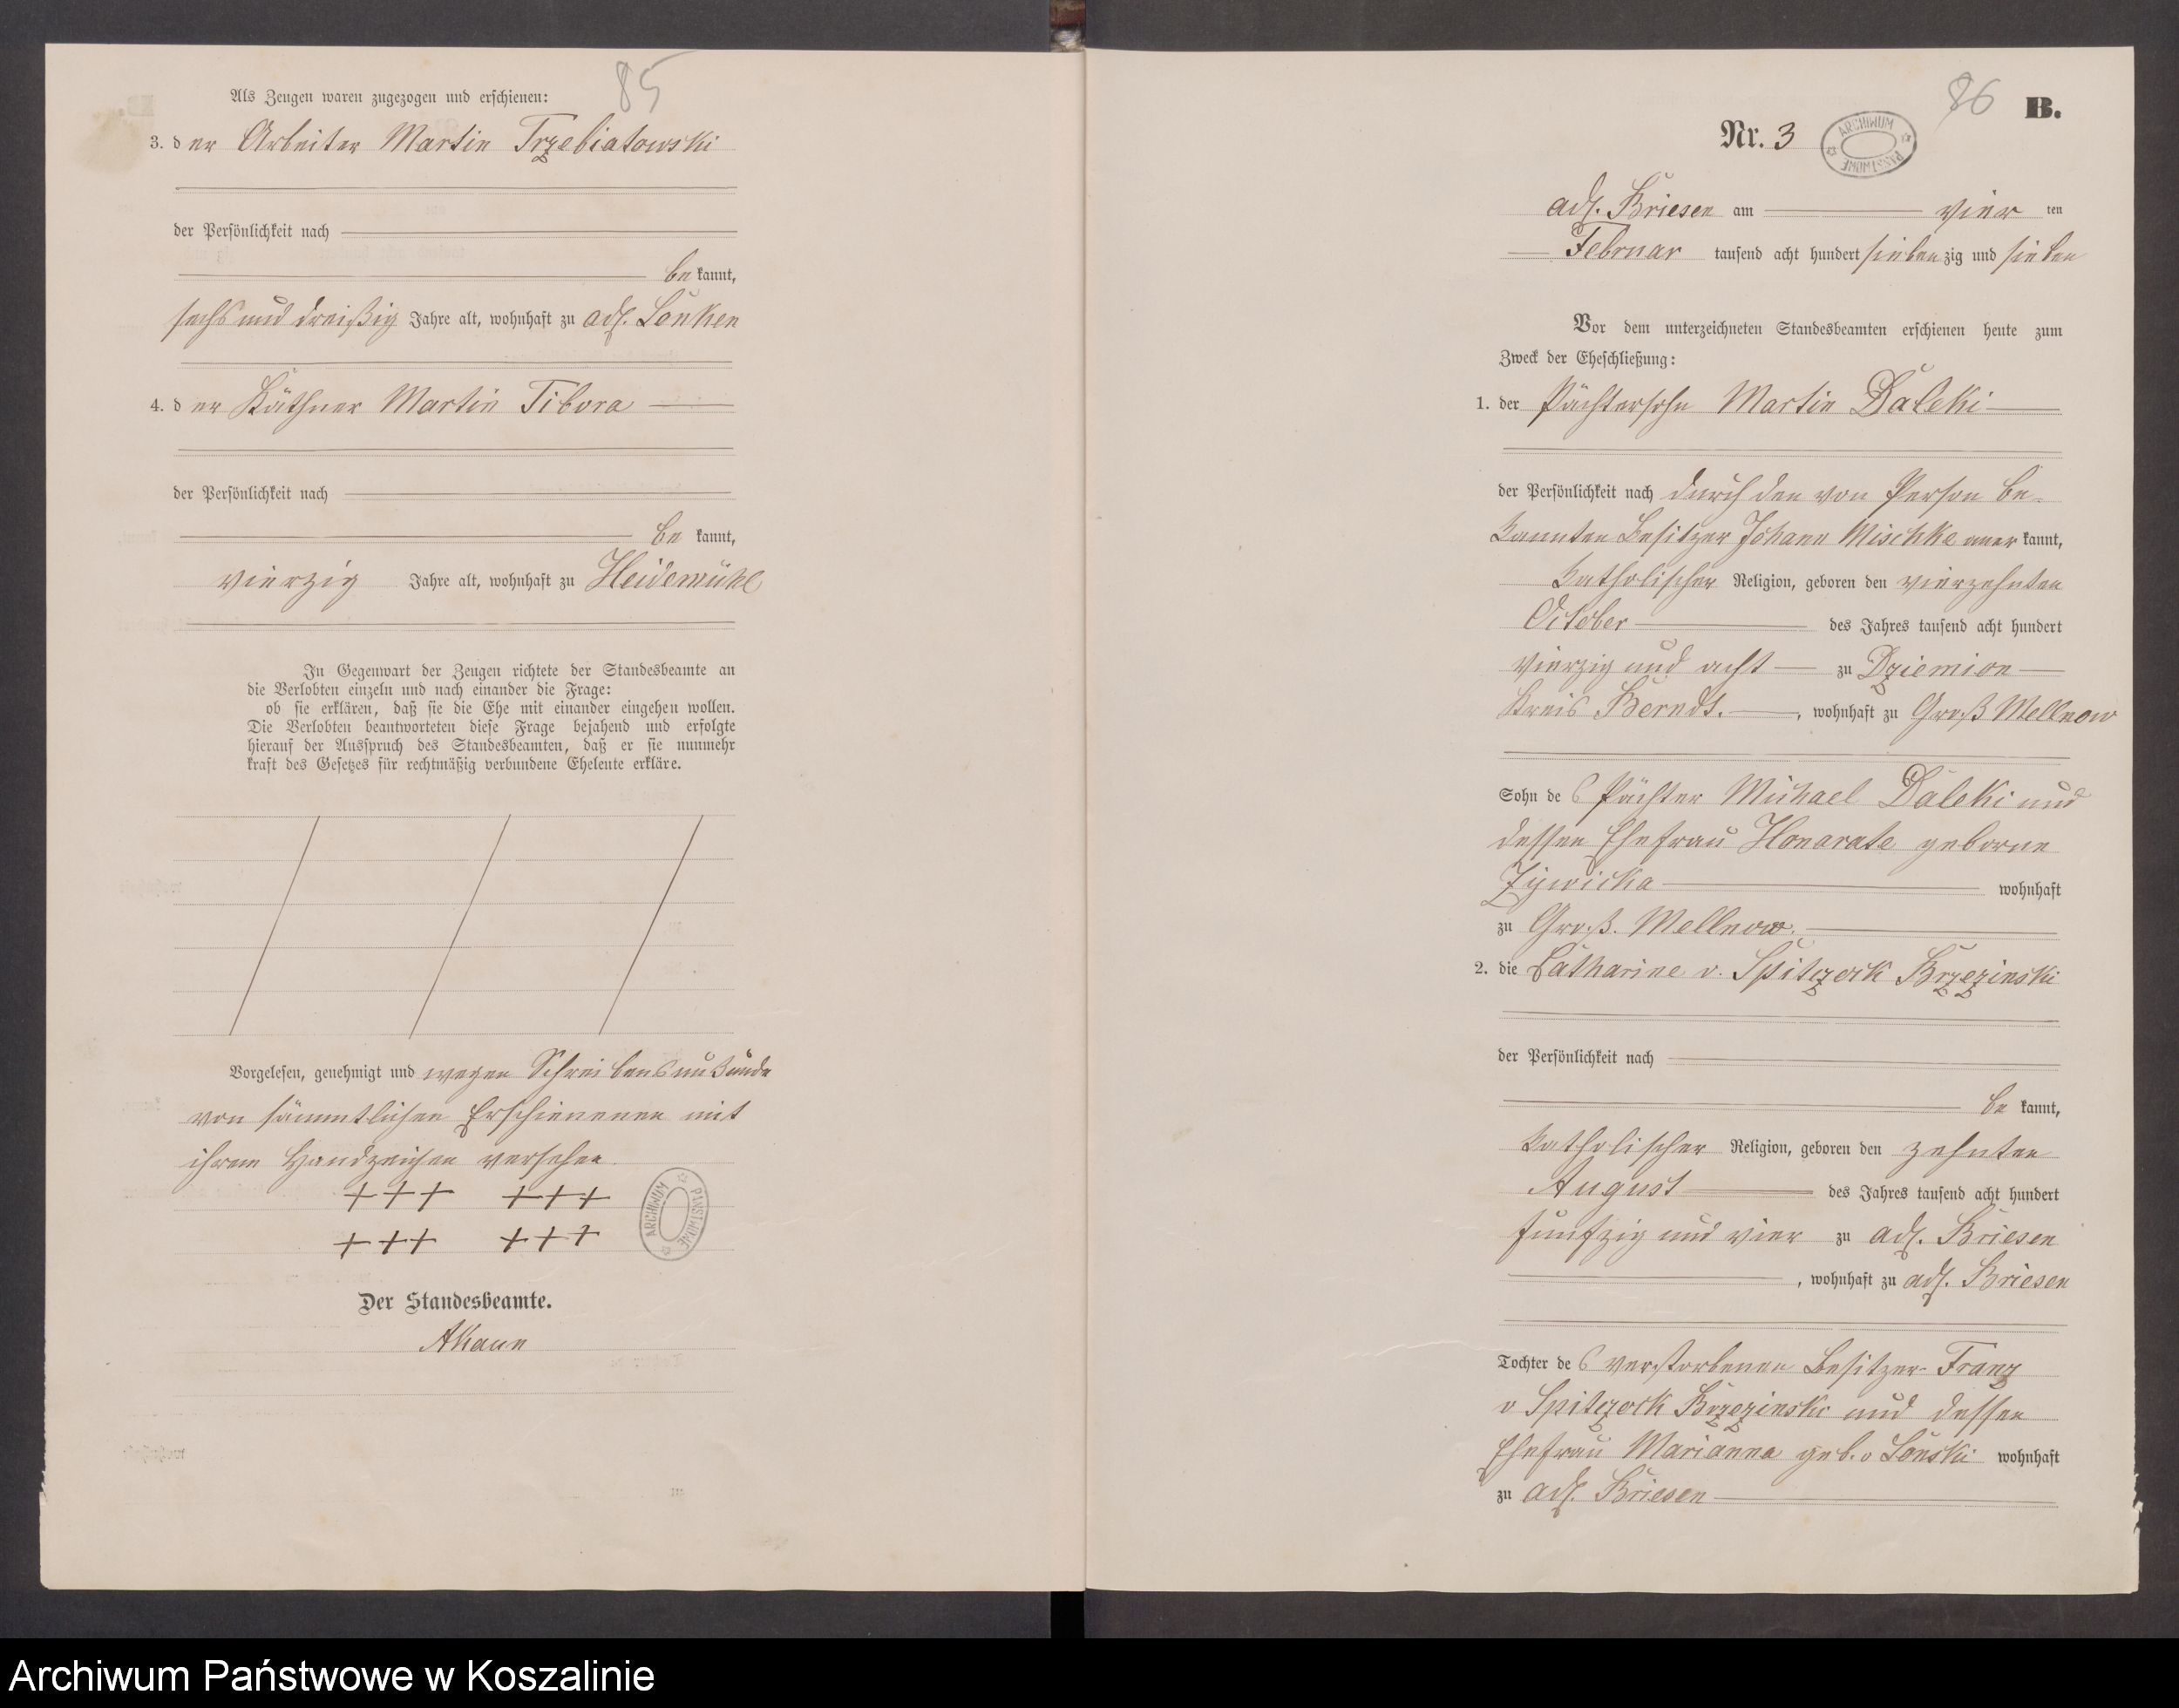 85
Als Zeugen waren zugezogen und erschienen:
3. der Arbeiter Martin Trzebiatowski
der Persönlichkeit nach
bekannt,
sechs und dreißig Jahre alt, wohnhaft zu adl. Lonken
4. der Käthner Martin Tibora
der Persönlichkeit nach
bekannt,
vierzig Jahre alt, wohnhaft zu Heidemühl
In Gegenwart der Zeugen richtete der Standesbeamte an
die Verlobten einzeln und nach einander die Frage:
ob sie erklären, daß sie die Ehe mit einander eingehen wollen.
Die Verlobten beantworteten diese Frage bejahend und erfolgte
hierauf der Ausspruch des Standesbeamten, daß er sie nunmehr
kraft des Gesetzes für rechtmäßig verbundene Eheleute erkläre.
Vorgelesen, genehmigt und wegen Schreibensunkunde
von sämmtlichen Erschienenen mit
ihrem Handzeichen versehen
+++ +++
+++ +++
ARCHIWUM PAŃSTWOWE
Der Standesbeamte.
86
B.
Nr. 3
ARCHIWUM PAŃSTWOWE
adl. Briesen am vier ten
Februar tausend acht hundert siebenzig und sieben
Vor dem unterzeichneten Standesbeamten erschienen heute zum
Zweck der Eheschließung:
1. der Pächtersohn Martin Daleki
der Persönlichkeit nach durch den von Person be-
kannten Besitzer Johann Mischke anerkannt,
katholischer Religion, geboren den vierzehnten
October des Jahres tausend acht hundert
vierzig und acht zu Dziemion
Kreis Berndt., wohnhaft zu Groß Mellnow
Sohn des Pächter Michael Daleki und
dessen Ehefrau Honorate geborne
Zywicka wohnhaft
zu Groß. Mellnow.
2. die Catharine v. Spitczock Brzezinski
der Persönlichkeit nach
bekannt,
katholischer Religion, geboren den zehnten
August des Jahres tausend acht hundert
funfzig und vier zu adl. Briesen
, wohnhaft zu adl. Briesen
Tochter des verstorbenen Besitzer Franz
v Spitczock Brzezinski und dessen
Ehefrau Marianna geb. v Lonski wohnhaft
zu adl. Briesen
Archiwum Państwowe w Koszalinie